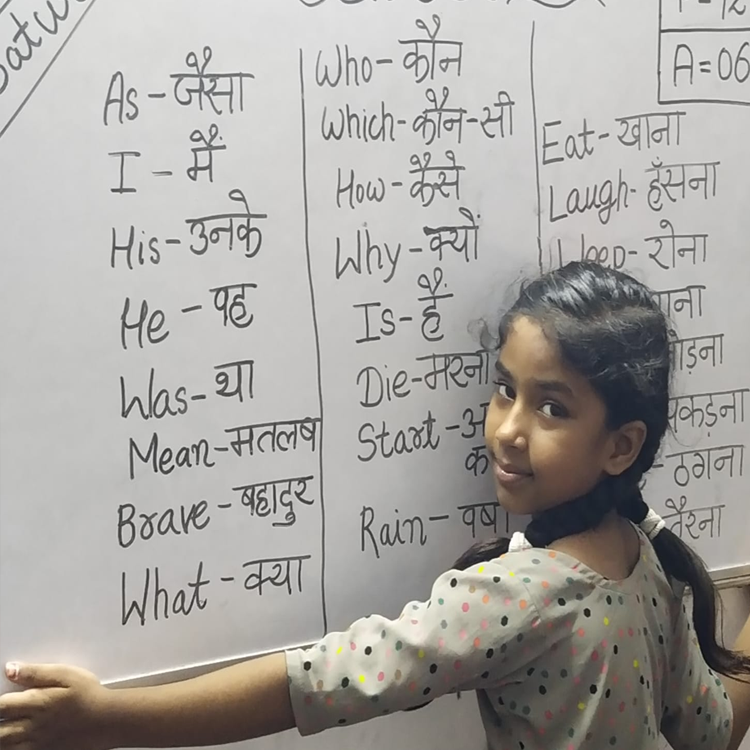 As - जैसा
I - मैं
His - उनके
He - वह
Was - था
Mean - मतलब
Brave - बहादुर
What - क्या
Who - कौन
Which - कौन-सी
How - कैसे
Why - क्यों
Is - है
Die - मरना
Start -
Rain -
A = 06
Eat - खाना
Laugh - हँसना
रोना
ठगना
तैरना